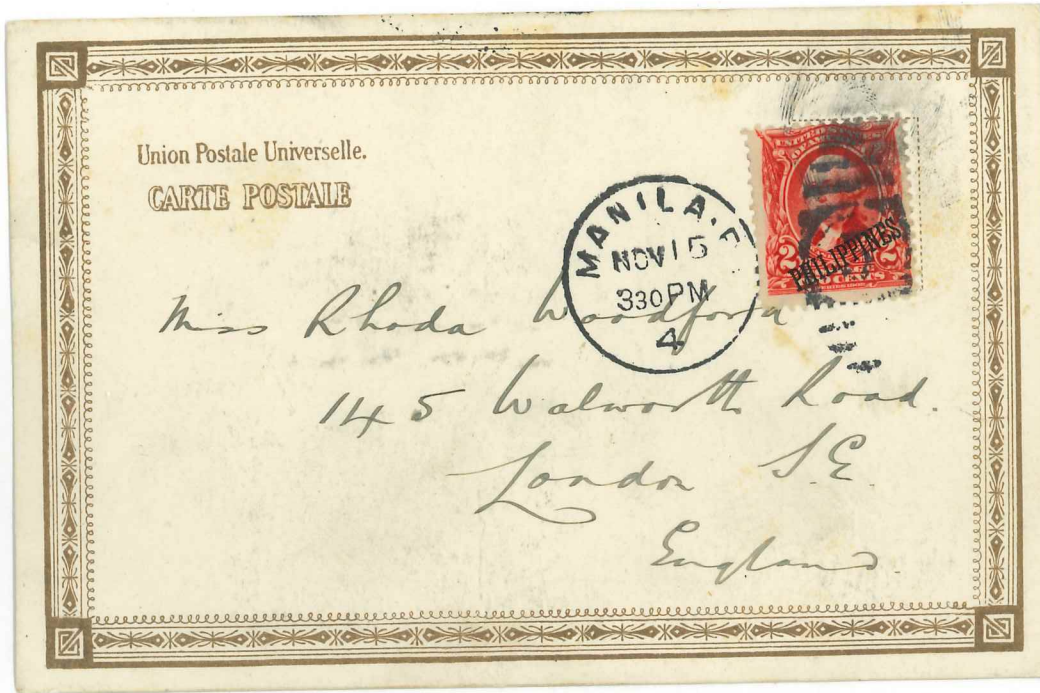 Union Postale Universelle.
CARTE POSTALE
MANILA.P
NOV 15
330PM
4
2 2
CENTS
PHILIPPINES
Miss Rhoda Woodford
145 Walworth Road.
London S.E.
England.